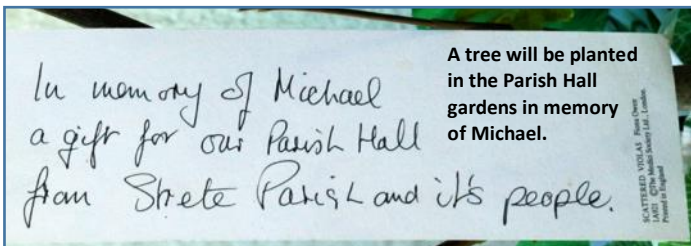 In memory of Michael
a gift for our Parish Hall
from Strete Parish and it's people.
A tree will be planted
in the Parish Hall
gardens in memory
of Michael.
SCATTERED VIOLAS Fiona Owen
©The Medici Society Ltd., London.
Printed in England